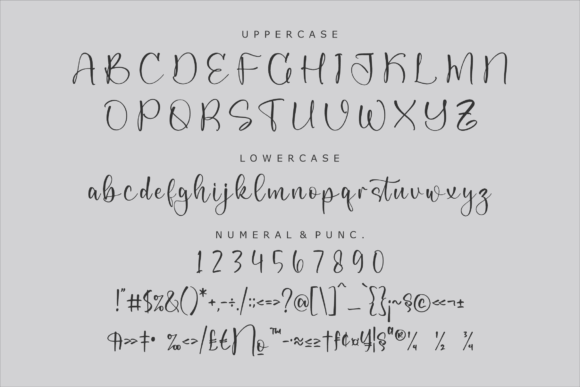 UPPERCASE
ABCDEFGHIJKLMN
OPQRSTUVWXYZ
LOWERCASE
abcdefghijklmnopqrstuvwxyz
NUMERAL & PUNC.
1234567890
!"#$%&()*+,-÷./:;<=>?@[\]^_`{}¡~§©«¬±
»‡•‰<>/£€№™–·≈≤≥†f¢¤¥¦§ª®¼ ½ ¾